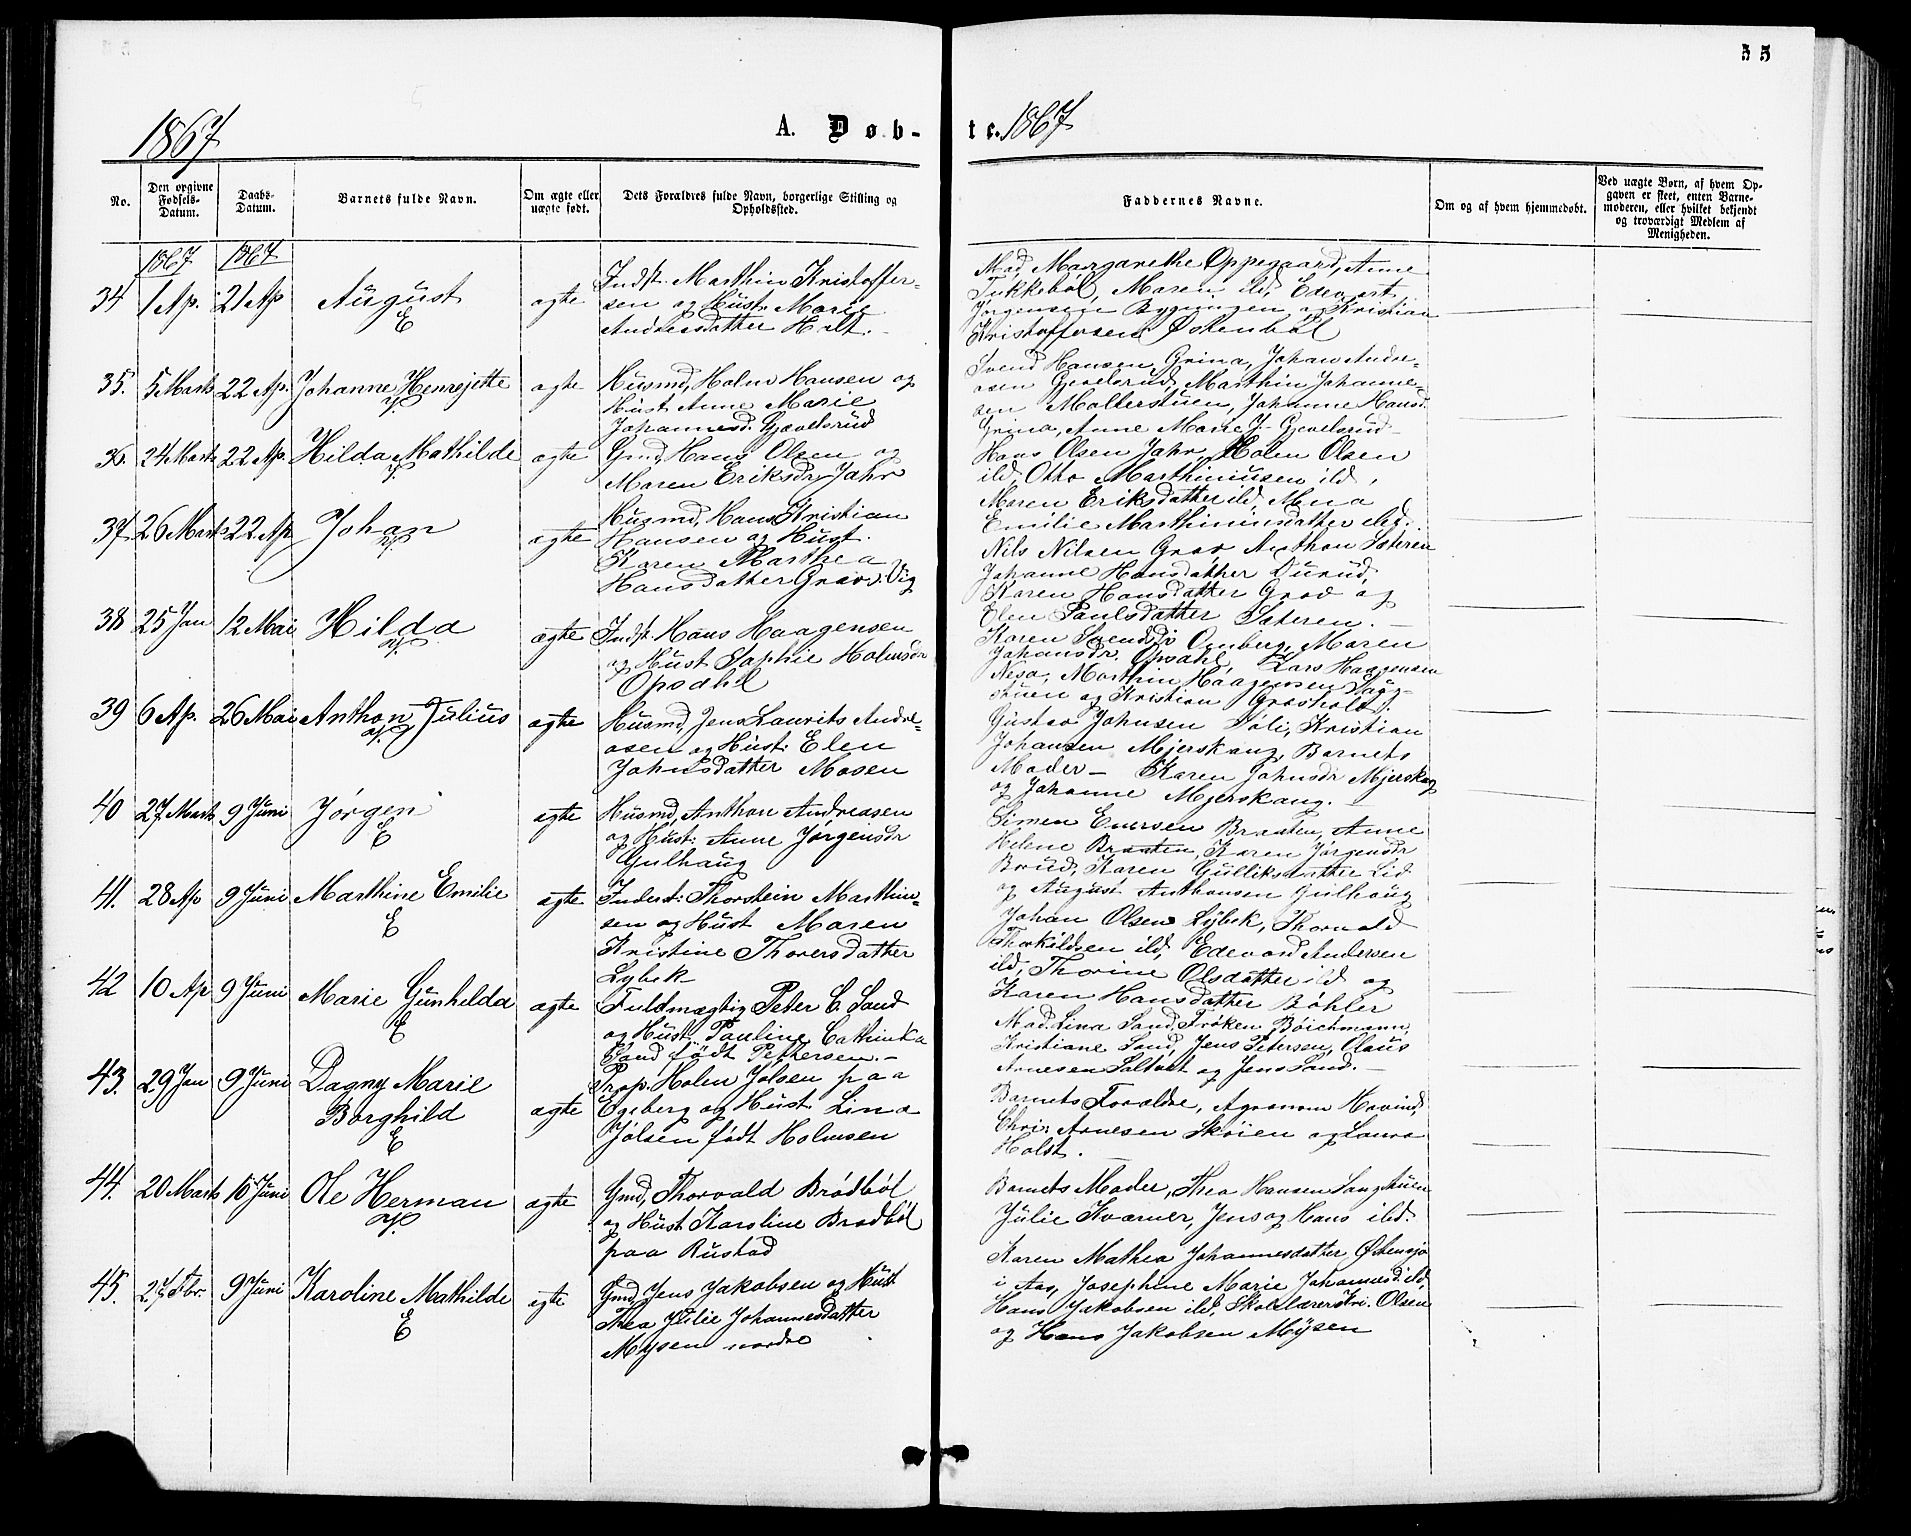 55
1867
A. Døb-
te. 1867
No.
Den opgivne Fødsels-Datum.
Daabs-Datum.
Barnets fulde Navn.
Om ægte eller uægte født.
Dets Forældres fulde Navn, borgerlige Stilling og Opholdssted.
Faddernes Navne.
Om og af hvem hjemmedøbt.
Ved uægte Børn, af hvem Opgaven er skeet, enten Barnemoderen, eller hvilket bekjendt og troværdigt Medlem af Menigheden.
1867 1867
34 1 Ap. 21 Ap August E ægte
Indst. Marthin Kristoffer-
sen og Hust. Marie
Andreasdatter Holt.
Mad. Margarethe Oppegaard, Anne
Tukkebøl, Maren ibd, Edevart
Jørgensen Bygningen og Kristian
Kristoffersen Østenbøl
35. 5 Marts 22 Ap. Johanne Henrejette ægte
Husmd, Holm Hansen og
Hust Anne Marie
Johannesd. Gjævelsrud
Svend Hansen Grina, Johan Andre-
asen Gjevelsrud, Marthin Johanne-
sen Mollerstuen, Johanne Hansd.
Grina, Anne Marie J- Gjevelsrud-
36. 24 Marts 22 Ap. Hilda Mathilde ægte
Gmd, Hans Olsen og
Maren Eriksdr. Jahr
Hans Olsen Jahr, Holm Olsen
ibd, Otto Marthiniusen ibd,
Maren Eriksdatter ibd, Mina
Emilie Marthiniusdatter ibd.
37. 26 Marts 22 Ap Johan ægte
Husmd, Hans Kristian
Hansen og Hust.
Karen Marthea
Hansdatter Grav i Vig
Nils Nilsen Grav Anthon Sæteren
Johanne Hansdatter Durud,
Karen Hansdatter Grav og
Elen Paulsdatter Sæteren. -
38 25 Jan 12 Mai Hilda ægte
Indst. Hans Haagensen
og Hust Sophie Holmsdr
Opsahl
Karen Svendsdr Omberg, Maren
Johansdr. Opsahl, Lars Haagensen
Nesa, Marthin Haagensen
og Kristian
39 6 Ap. 26 Mai Anthon Julius ægte
Husmd, Jens Laurits Andre-
asen og Hust: Elen
Johnsdatter Mosen
Gustav Johnsen Døli, Kristian
Johansen Mjerskaug, Barnets
Moder - Karen Johnsdr Mjerskaug
og Johanne Mjerskaug.
40 27 Marts 9 Juni Jørgen E ægte
Husmd, Anthon Andreasen
og Hust: Anne Jørgensdr
Gulhaug
Simen Eversen Braaten, Anne
Helene Braaten, Karen Jørgensdr
Brud, Karen Gulliksdatter Lid
og August Anthonsen Gulhaug
41. 28 Ap 9 Juni Marthine Emilie E ægte
Inderst: Thorstein Marthin-
sen og Hust Maren
Kristine Thoversdatter
Lybek
Johan Olsen Lybek, Thorvald
Thorkildsen ibd, Edevard Andersen
ibd, Thorine Olsdatter ibd og
Karen Hansdatter Bøhler
42 10 Ap 9 Juni Marie Gunhilda E ægte
Fuldmægtig Peter C. Sand
og Hust. Pauline Cathinka
Sand født Pettersen.-
Mad. Lina Sand, Frøken Böichmann,
Kristiane Sand, Jens Petersen, Olaus
Arnesen Saltvet og Jens Sand.-
43. 29 Jan 9 Juni Dagny Marie
Borghild E ægte
Prop. Holm Jølsen paa
Egeberg og Hust Lina
Jølsen født Holmsen
Barnets Foræeldre, Agronom Hovind,
Chri. Arnesen Skøien og Laura
Holst.
44. 20 Marts 16 Juni Ole Herman ægte
Gmd, Thorvald Brødbøl
og Hust Karoline Brødbøl
paa Rustad
Barnets Moder, Thea Hansen Langstuen
Julie Kværner, Jens og Hans ibd.
45. 27 Fbr. 9 Juni Karoline Mathilde E ægte
Gmd, Jens Jakobsen og Hust
Thea Julie Johannesdatter
Mysen nordre
Karen Mathea Johannesdatter Østensjø
i Aas, Josephine Marie Johannesd ibd,
Hans Jakobsen ibd, Skolelærer Kri. Olsen
og Hans Jakobsen Mysen